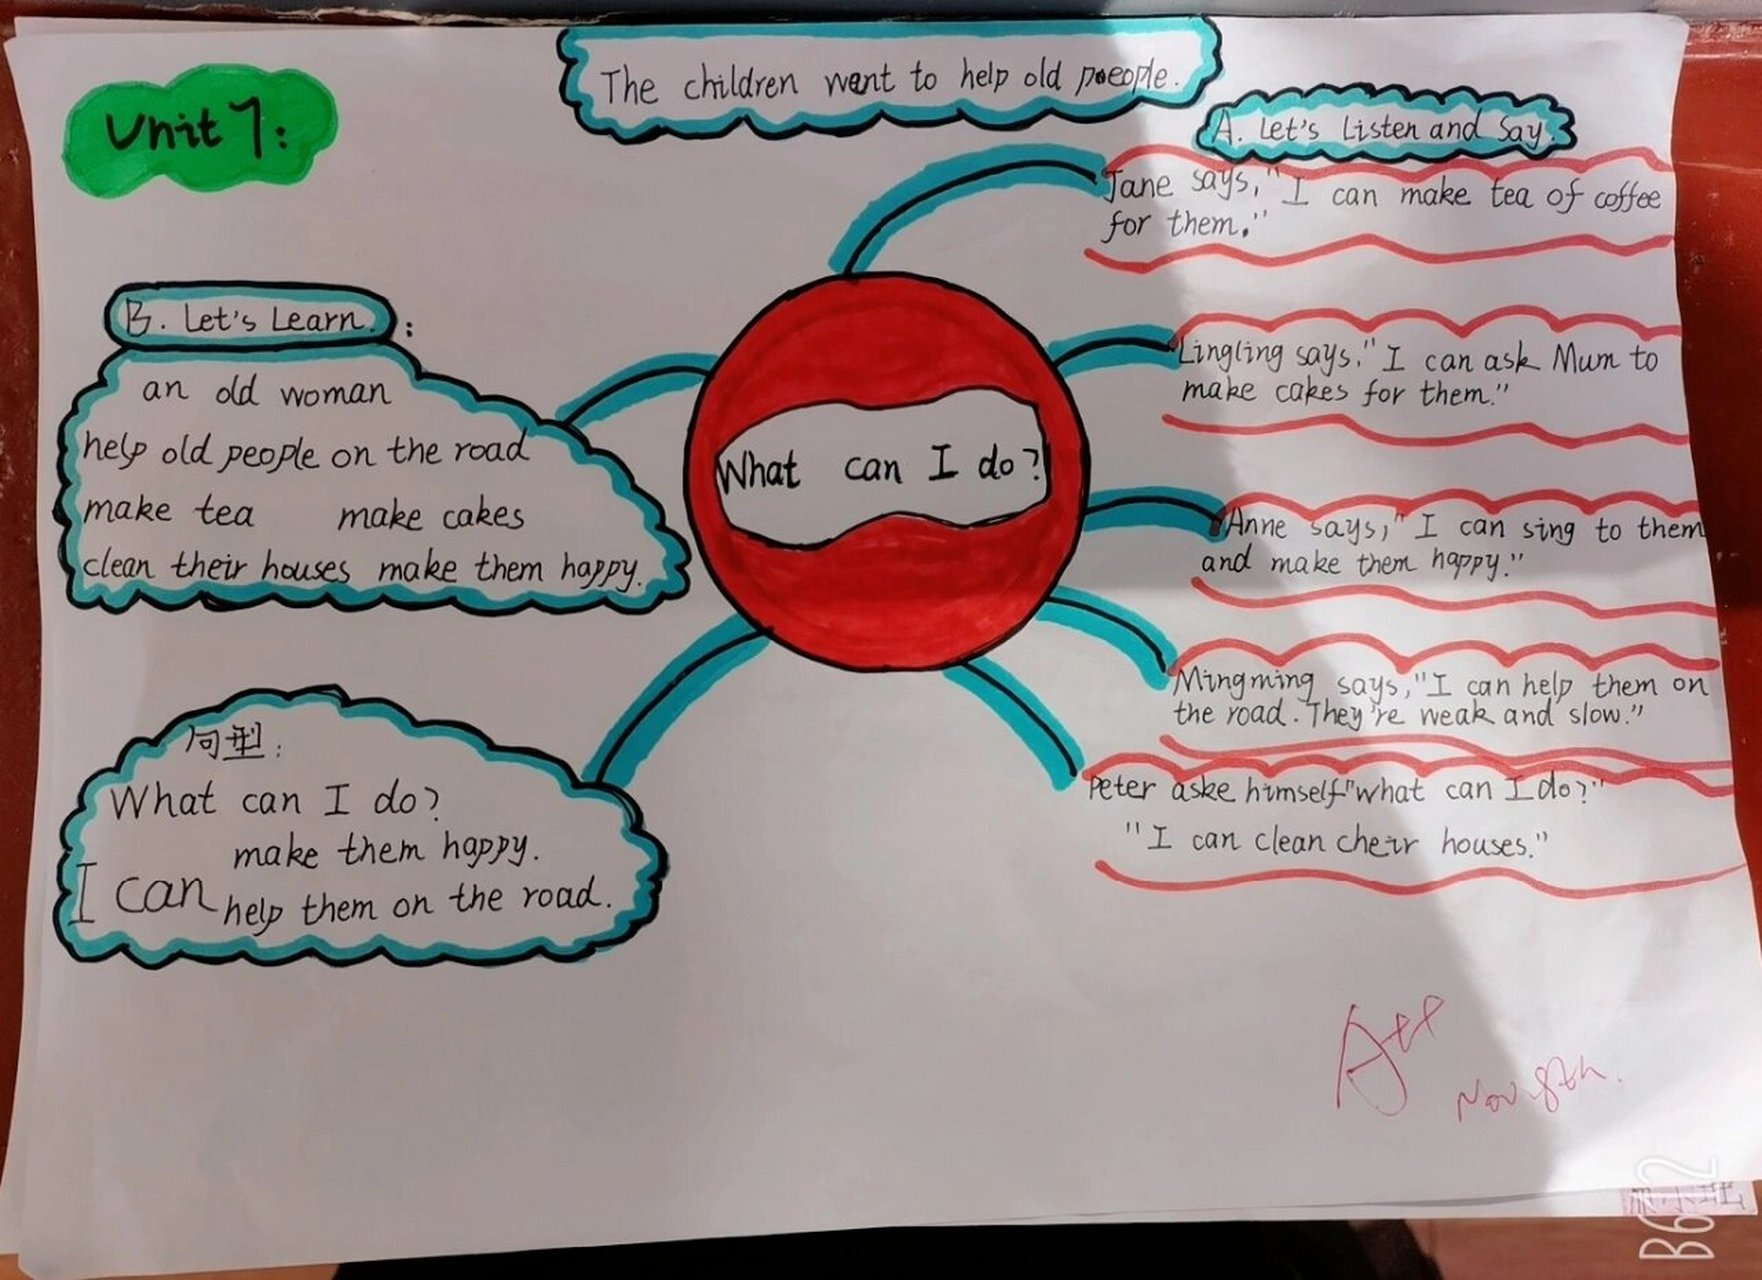 Unit 7:
The children want to help old poeople.
A. Let's Listen and Say.
Jane says, "I can make tea of coffee
for them."
Lingling says." I can ask Mum to
make cakes for them."
Anne says, "I can sing to them
and make them happy."
Mingming says,"I can help them on
the road. They're weak and slow."
Peter aske himself"what can I do?"
"I can clean cheir houses."
What can I do?
B. Let's Learn.:
an old woman
help old people on the road
make tea make cakes
clean their houses make them happy.
句型:
What can I do?
make them happy.
I can
help them on the road.
A++
Nov 8th.
B612